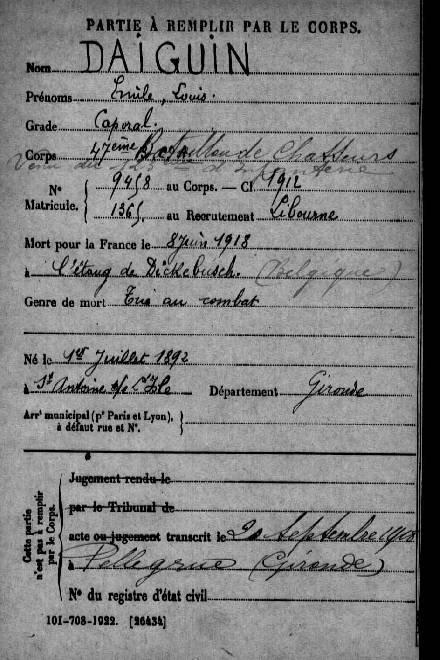 PARTIE À REMPLIR PAR LE CORPS.
Nom DAIGUIN
Prénoms Emile, Louis.
Grade Caporal.
Corps 47ème Bataillon de Chasseurs
Venu du
N° Matricule. { 9458 au Corps. — Cl 1912
1365, au Recrutement Libourne
Mort pour la France le 8 Juin 1918
à L'étang de Dickebusch. (Belgique)
Genre de mort Tué au combat
Né le 1er Juillet 1892
à St Antoine s/e L'Isle Département Gironde
Arrt municipal (pr Paris et Lyon), à défaut rue et N°. }
Cette partie n'est pas à remplir par le Corps.
Jugement rendu le
par le Tribunal de
acte ou jugement transcrit le 20 Septembre 1918
à Pellegrue (Gironde)
N° du registre d'état civil
101-708-1922. [26434]